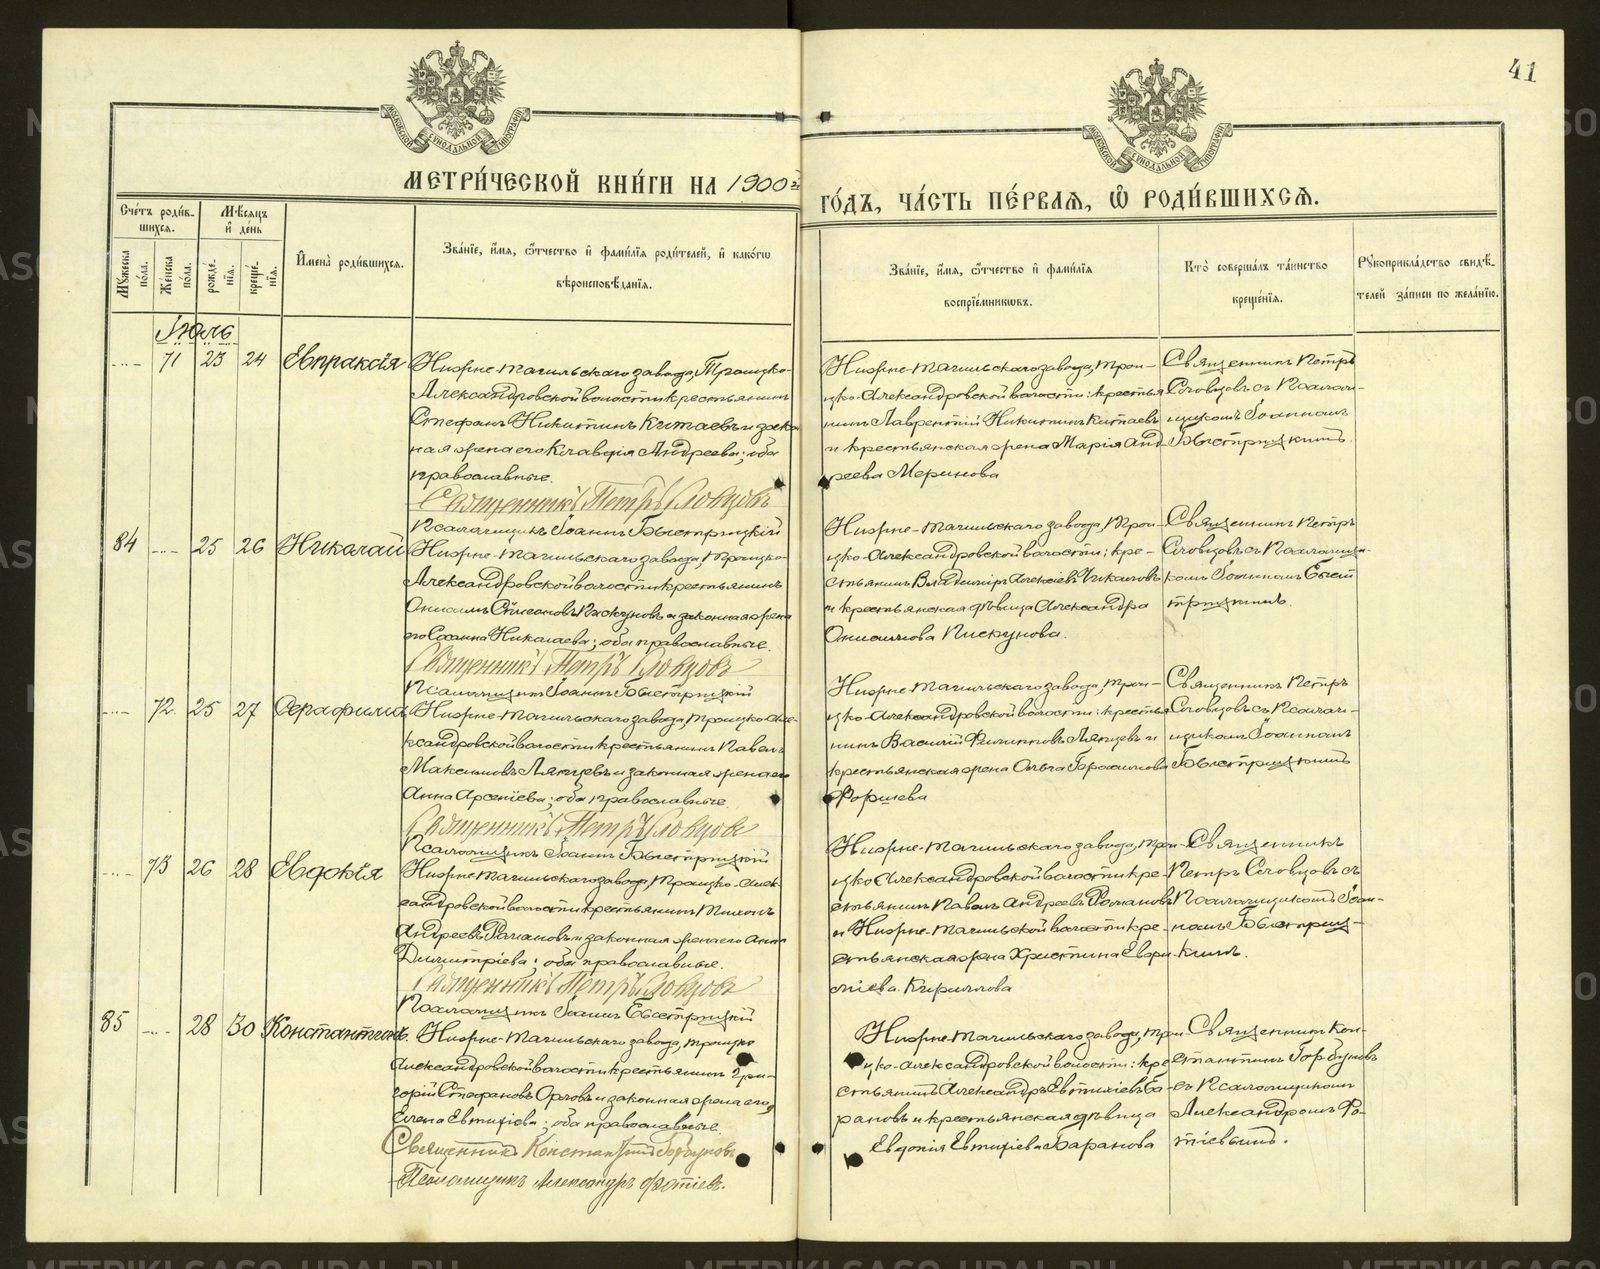 41
МОСКОВСКОЙ СѴНОДАЛЬНОЙ ТИПОГРАФІИ
МОСКОВСКОЙ СѴНОДАЛЬНОЙ ТИПОГРАФІИ
МЕТРИ́ЧЕСКОЙ КНИ́ГИ НА 1900й
ГО́ДЪ, ЧА́СТЬ ПЕ́РВАѦ, Ѡ҆ РОДИ́ВШИХСѦ.
Сче́тъ роди́в-
шихсѧ.
Мꙋжеска по́ла.
Женска по́ла.
Мѣ́сѧцъ
и҆ де́нь
рожде́нїѧ.
креще́нїѧ.
И҆мена̀ роди́вшихсѧ.
Зва́нїе, и҆́мѧ, ѻ҆́тчество и҆ фами́лїѧ роди́телей, и҆ како́гѡ
вѣроисповѣ́данїѧ.
Зва́нїе, и҆́мѧ, ѻ҆́тчество и҆ фами́лїѧ
воспрїе́мникѡвъ.
Кто̀ соверша́лъ та́инство
креще́нїѧ.
Рꙋкоприкла́дство свидѣ́-
телей за́писи по жела́нїю.
Іюль
71 23 24 Евпраксія
Нижне-Тагильскаго завода, Троицко-
Александровской волости крестьянинъ
Стефанъ Никитинъ Китаевъ и закон
ная жена его Клавдія Андреева; оба
православные.
Священникъ Петръ Словцовъ
Псаломщикъ Іоаннъ Быстрицкій
Нижне-Тагильскаго завода, Трои-
цко-Александровской волости: крестья
нинъ Лаврентій Никитинъ Китаевъ
и крестьянская жена Марія Анд-
реева Меринова
Священникъ Петръ
Словцовъ съ Псалом-
щикомъ Іоанномъ
Быстрицкимъ.
84 25 26 Николай
Нижне-Тагильскаго завода, Троицко-
Александровской волости крестьянинъ
Онисимъ Пискуновъ и законная жена
его Николаева; оба православные.
Священникъ Петръ Словцовъ
Псаломщикъ Іоаннъ Быстрицкій
Нижне-Тагильскаго завода, Трои-
цко-Александровской волости: кре-
стьянинъ Владиміръ Алексіевъ
и крестьянская дѣвица Александра
Онисимова Пискунова.
Священникъ Петръ
Словцовъ съ Псаломщи-
комъ Іоанномъ Быст
рицкимъ.
72. 25 27 Серафима
Нижне-Тагильскаго завода, Троицко-Але-
ксандровской волости крестьянинъ Павелъ
Максимовъ Ляпцевъ и законная жена его
Анна Арсеніева; оба православные.
Священникъ Петръ Словцовъ
Псаломщикъ Іоаннъ Быстрицкій
Нижне-Тагильскаго завода, Трои-
цко-Александровской волости: крестья
нинъ Василій Филипповъ Ляпцевъ и
крестьянская жена Ольга Герасимова
Форшева
Священникъ Петръ
Словцовъ съ Псалом-
щикомъ Іоанномъ
Быстрицкимъ
73 26 28 Евдокія
Нижне-Тагильскаго завода, Троицко-Алек-
сандровской волости крестьянинъ Тихонъ
Андреевъ Романовъ и законная жена его Анна
Димитріева; оба православные.
Священникъ Петръ Словцовъ
Псаломщикъ Іоаннъ Быстрицкій
Нижне-Тагильскаго завода, Трои-
цко-Александровской волости кре-
стьянинъ Павелъ Андреевъ Романовъ
и Нижне-Тагильской волости кре-
стьянская жена Христина Евфи-
міева Кириллова
Священникъ
Петръ Словцовъ съ
Псаломщикомъ Іоан-
номъ Быстриц-
кимъ.
85 28 30 Константинъ.
Нижне-Тагильскаго завода, Троицко
Александровской волости крестьянинъ Гри-
горій Стефановъ Орловъ и законная жена его,
Елена Евтихіева; оба православные.
Священникъ Константинъ Горбуновъ
Псаломщикъ Александръ Фотіевъ.
Нижне-Тагильскаго завода, Трои
цко-Александровской волости: кре
стьянинъ Александръ Евтихіевъ Ба-
рановъ и крестьянская дѣвица
Евдокія Евтихіева Баранова
Священникъ Кон-
стантинъ Горбуновъ
съ Псаломщикомъ
Александромъ Фо-
тіевымъ.